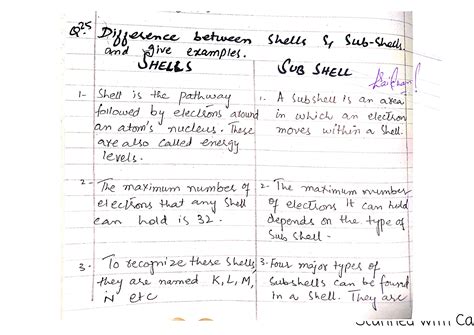 Q25 Difference between Shells & Sub-Shells
and give examples.
SHELLS
SUB SHELL
1- Shell is the pathway
followed by electrons around
an atom's nucleus. These
are also called energy
levels.
1. A subshell is an area
in which an electron
moves within a shell.
2- The maximum number of
electrons that any shell
can hold is 32.
2- The maximum number
of electrons it can hold
depends on the type of
Sub shell.
3. To recognize these shells,
they are named K, L, M,
N etc
3. Four major types of
subshells can be found
in a shell. They are
Scanned with Ca